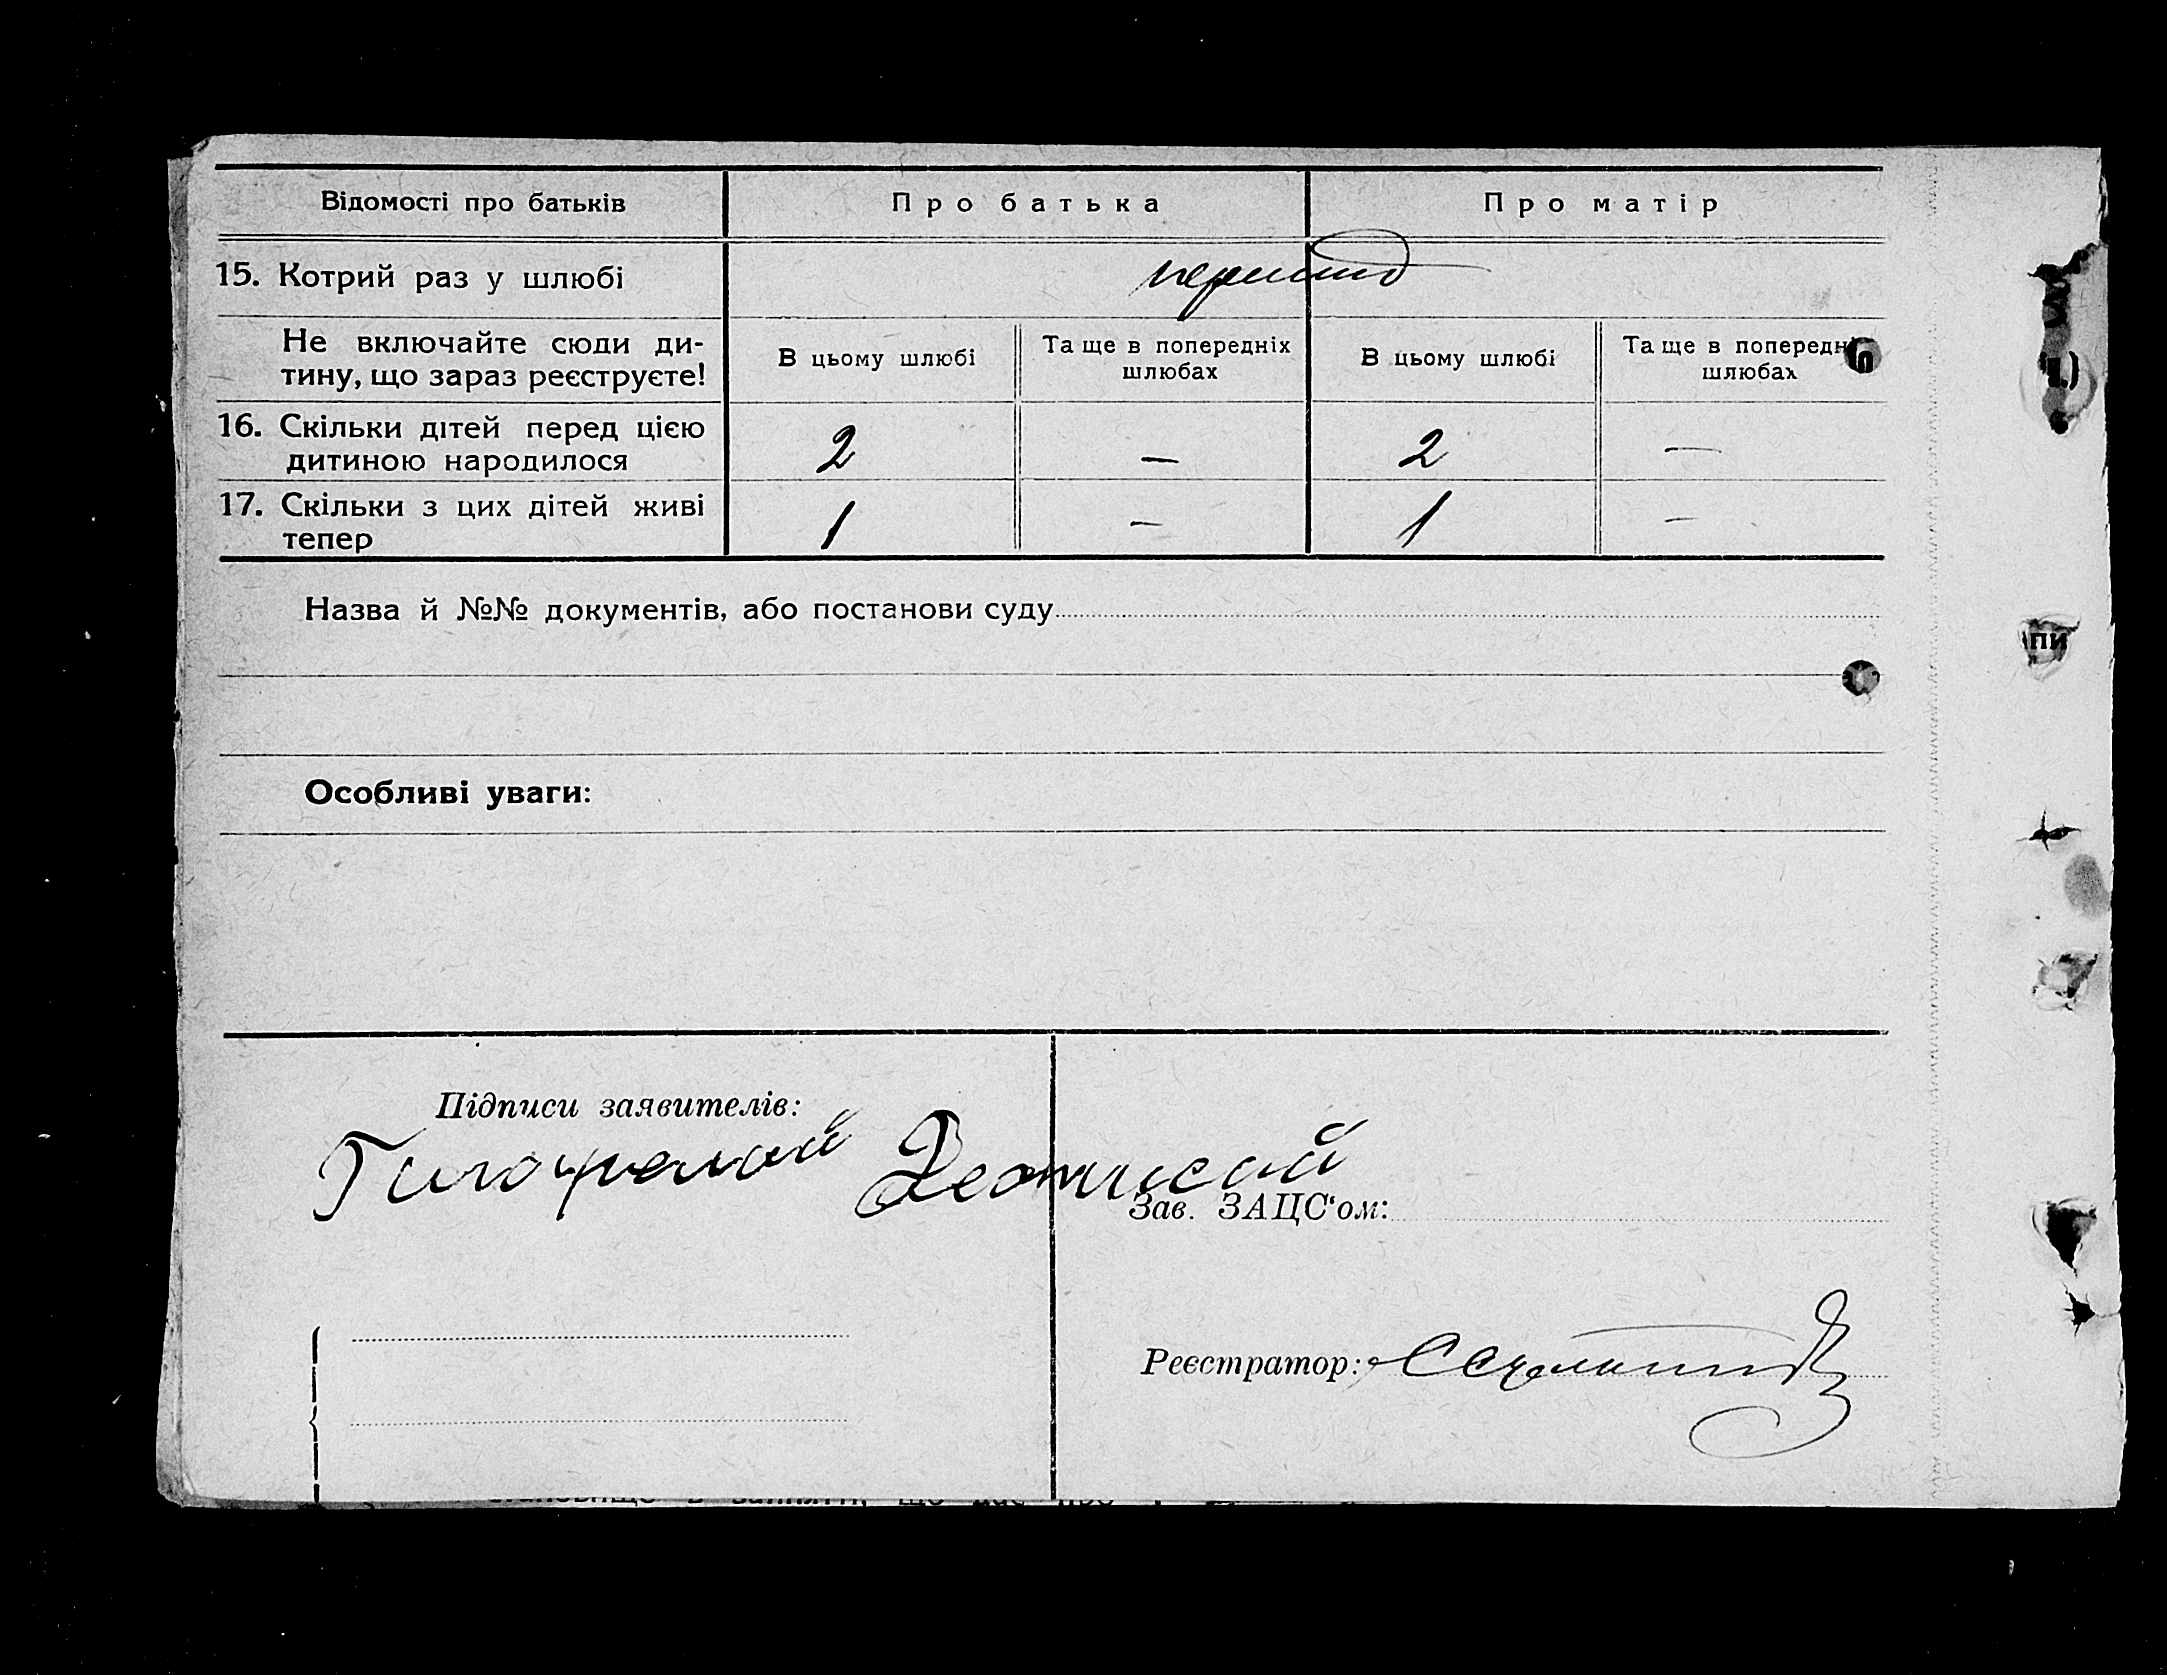 Відомості про батьків Про батька Про матір
15. Котрий раз у шлюбі перший
Не включайте сюди ди-
тину, що зараз реєструєте!
В цьому шлюбі
Та ще в попередніх
шлюбах
В цьому шлюбі
Та ще в попередн
шлюбах
16. Скільки дітей перед цією
дитиною народилося
2 — 2 —
17. Скільки з цих дітей живі
тепер
1 — 1 —
Назва й №№ документів, або постанови суду
Особливі уваги:
Підписи заявителів:
Зав. ЗАЦС'ом:
Реєстратор:
пи